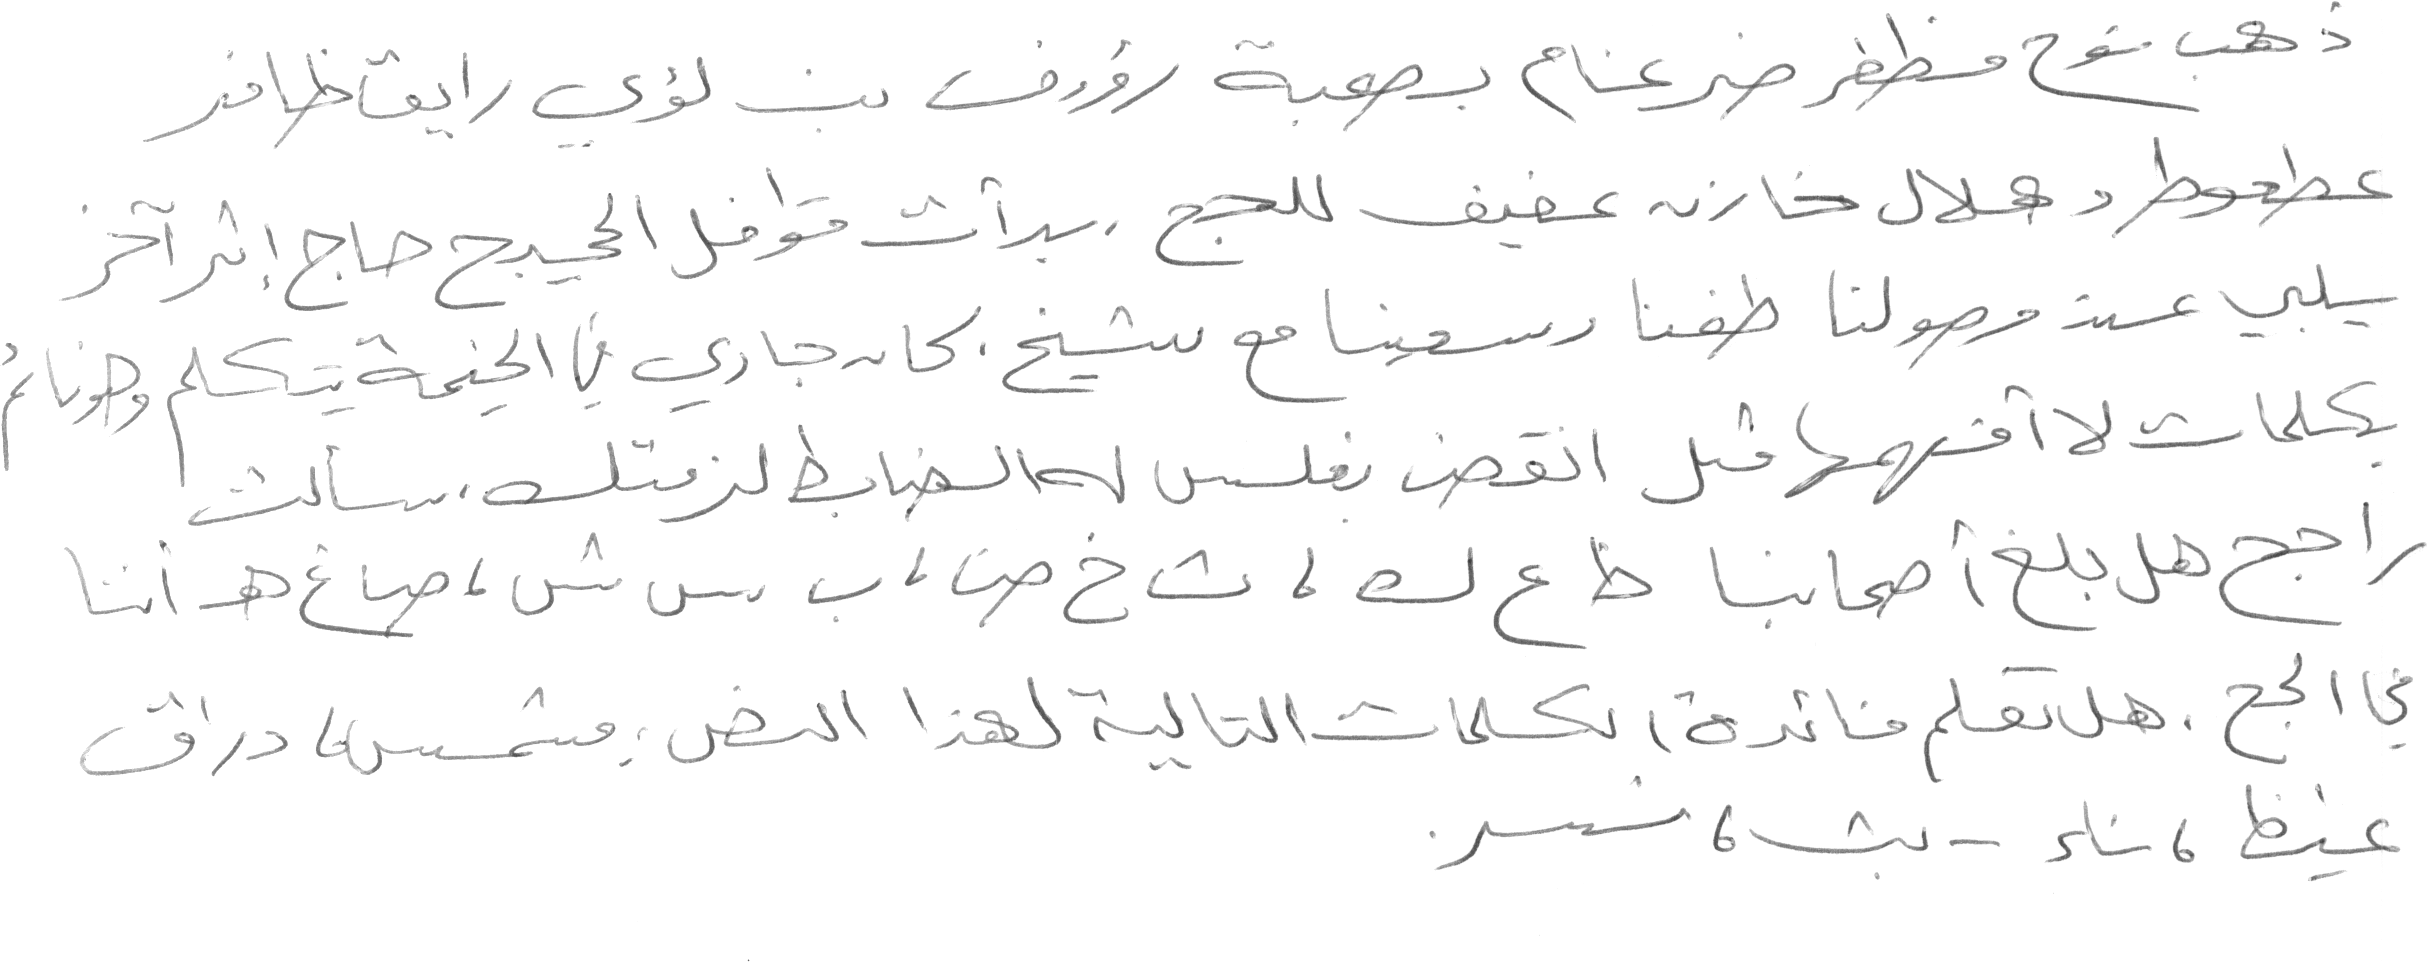 ذهب نوح مظفر ضرغام بصحبة رؤوف بن لؤي رايق ظافر
عطعوط و هلال خازن عفيف للحج . بدأت قوافل الحجيج حاج إثر آخر
يلبي عند وصولنا طفنا وسعينا مع شيخ . كان جاري في الخيمة يتكلم وهو نائم
بكلمات لا أفهمها مثل انقض بغلس له الضابط لزمتك . سألت
راجح هل بلغ أصحابنا ظ ع ك ، ث خ ض ، ب س ش ، ص غ هـ أننا
في الحج . هل تعلم فائدة الكلمات التالية لهذا النص : مشمس ، دراق
غيظ ، ناء - بث ، نسر .